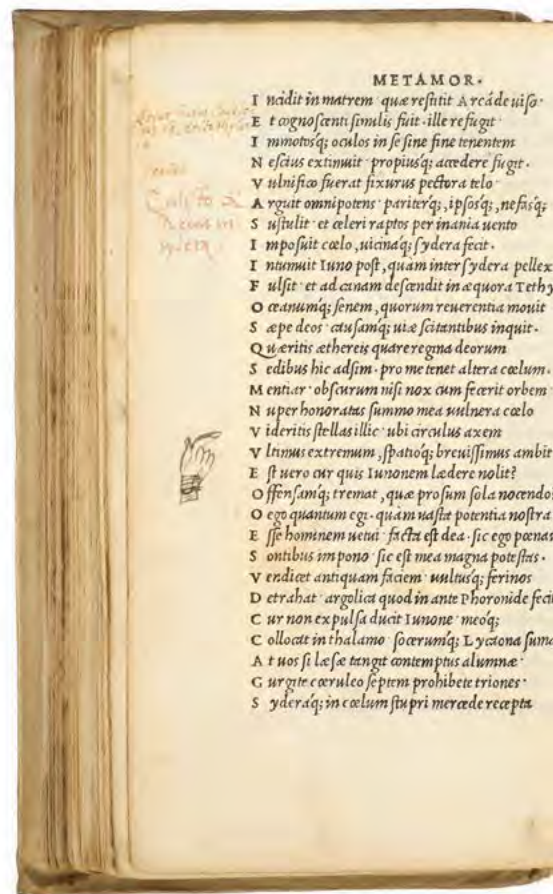 METAMOR.
I ncidit in matrem· quæ restitit Arcade uiso·
E t cognoscenti similis fuit· ille refugit·
I mmotosq; oculos in se sine fine tenentem
N escius extimuit· propiusq; accedere fugit·
V ulnifico fuerat fixurus pectora telo·
A rguit omnipotens· pariterq;, ipsosq;, nefasq;
S ustulit· et celeri raptos per inania uento
I mposuit cœlo, uicinaq; sydera fecit·
I ntumuit Iuno post, quam inter sydera pellex
F ulsit· et ad canam descendit in æquora Tethy
O ceanumq; senem, quorum reuerentia mouit
S æpe deos· causamq; uiæ scitantibus inquit·
Quæritis æthereis quare regina deorum
S edibus hic adsim· pro me tenet altera cœlum·
M entiar· obscurum nisi nox cum fecerit orbem·
N uper honoratas summo mea uulnera cœlo
V ideritis stellas illic· ubi circulus axem
V ltimus extremum, spatioq; breuissimus ambit
E st uero cur quis Iunonem lædere nolit?
O ffensamq; tremat, quæ prosum sola nocendo?
O ego quantum egi· quàm uasta potentia nostra
E sse hominem uetui· facta est dea· sic ego pœnas
S ontibus impono· sic est mea magna potestas·
V endicet antiquam faciem· uultusq; ferinos
D etrahat· argolica quod in ante Phoronide fecit
C ur non expulsa ducit Iunone· meoq;
C ollocat in thalamo· socerumq; Lycaona suma
A t uos si læsæ tangit contemptus alumnæ·
G urgite cœruleo septem prohibete triones·
S yderaq; in cœlum stupri mercede recepta